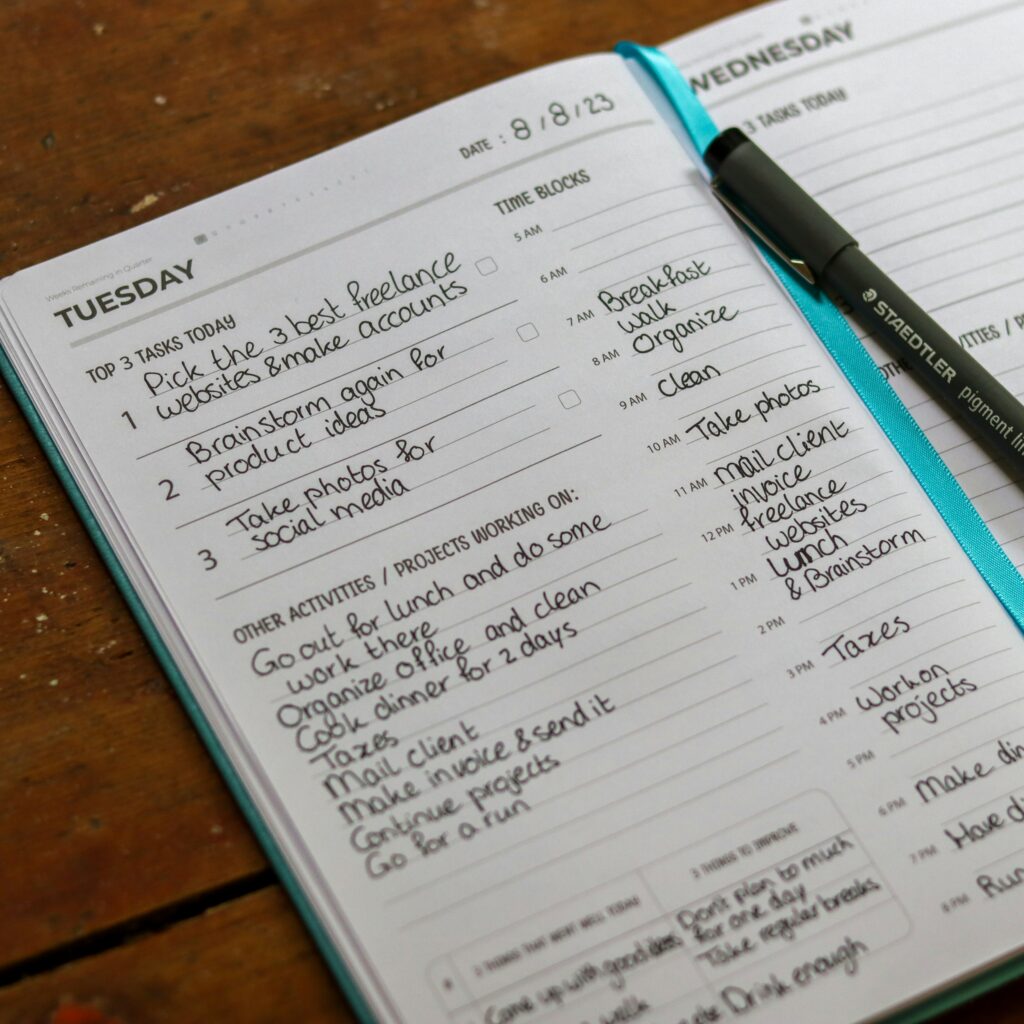 Weeks Remaining in Quarter
TUESDAY
DATE : 8/8/23
TOP 3 TASKS TODAY
1 Pick the 3 best freelance
websites & make accounts
2 Brainstorm again for
product ideas
3 Take photos for
social media
OTHER ACTIVITIES / PROJECTS WORKING ON:
Go out for lunch and do some
work there
Organize office and clean
Cook dinner for 2 days
Taxes
Mail client
Make invoice & send it
Continue projects
Go for a run
TIME BLOCKS
5 AM
6 AM
7 AM Breakfast
walk
8 AM Organize
9 AM Clean
10 AM Take photos
11 AM Mail client
invoice
12 PM freelance
websites
1 PM Lunch
& Brainstorm
2 PM
3 PM Taxes
4 PM Work on
projects
5 PM
6 PM Make din
7 PM Have d
8 PM Run
3 THINGS THAT WENT WELL TODAY
Came up with good ideas
walk
3 THINGS TO IMPROVE
Don't plan to much
for one day
Take regular breaks
Drink enough
WEDNESDAY
3 TASKS TODAY
OTHE
VITIES / P
STAEDTLER
pigment lin